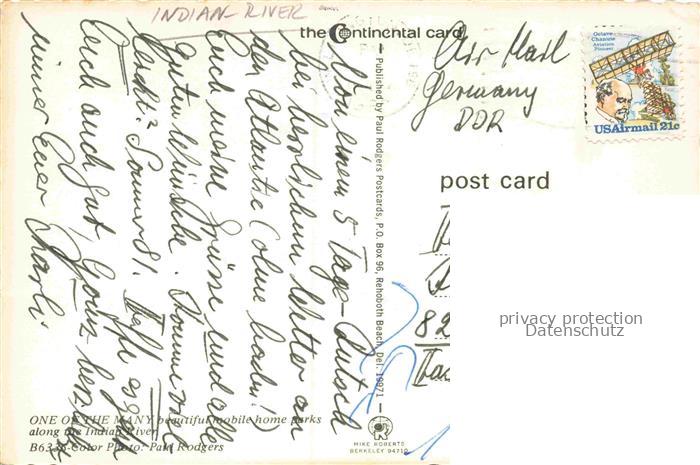 INDIAN-RIVER
the Continental card
Air Mail
Germany
DDR
Octave
Chanute
Aviation
Pioneer
USAirmail 21c
post card
Von einem 5 Tage-Rutsch
bei herrlichem Wetter an
der Atlantic (ohne baden!)
Euch meine Grüsse und alle
guten Wünsche. Kommt
Sommer 81. Hoffe es geht
Euch auch gut, Ganz herzlich
immer Euer Charli.
Published by Paul Rodgers Postcards, P.O. Box 96, Rehoboth Beach, Del. 19971
82
privacy protection
Datenschutz
ONE OF THE MANY beautiful mobile home parks
along the Indian River.
Color Photo: Paul Rodgers
MIKE ROBERTS
BERKELEY 94710